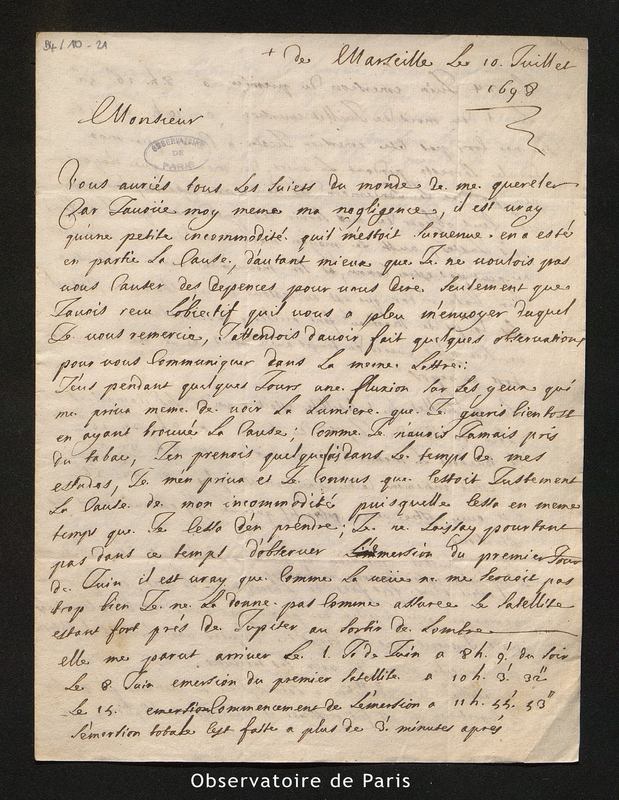 B4/10-21
+ de Marseille Le 10. Juillet
1698
Monsieur
OBSERVATOIRE
DE
PARIS
Vous auriés tous Les suiets du monde de me quereler
Car J'avoüe moy meme ma negligence, il est vray
qu'une petite incommodité qui m'estoit survenue en a esté
en partie La Cause, d'autant mieux que Je ne voulois pas
vous Causer des depences pour vous dire seulement que
J'avois receu L'obiectif qu'il vous a pleu m'envoyer duquel
Je vous remercie, J'attendois d'avoir fait quelques observations
pour vous Communiquer dans La meme Lettre:
J'eus pendant quelques Jours une fluxion sur Les yeux qui
me priva meme de voir La Lumiere que Je gueris bientost
en ayant trouvé La Cause; Comme Je n'avois Jamais pris
du tabac, J'en prenois quelquefois dans Le temps de mes
estudes, Je m'en priva et Je Connus que C'estoit Justement
La Cause de mon incommodité puisqu'elle Cessa en meme
temps que Je Cessa d'en prendre; Je ne Laissay pourtant
pas dans ce temps d'observer L'emersion du premier Jour
de Juin il est vray que Comme La veüe ne me servoit pas
trop bien Je ne La donne pas Comme assurée Le satellite
estant fort prés de Jupiter au sortir de L'ombre
elle me parut arriver Le 1. Jr de Juin a 8h. 9'. du soir
Le 8. Juin emersion du premier satellite a 10h. 3'. 32"
Le 15. emersion Commencement de L'emersion a 11h. 55'. 53"
L'emersion totale s'est faite a plus de 3'. minutes aprés
Observatoire de Paris